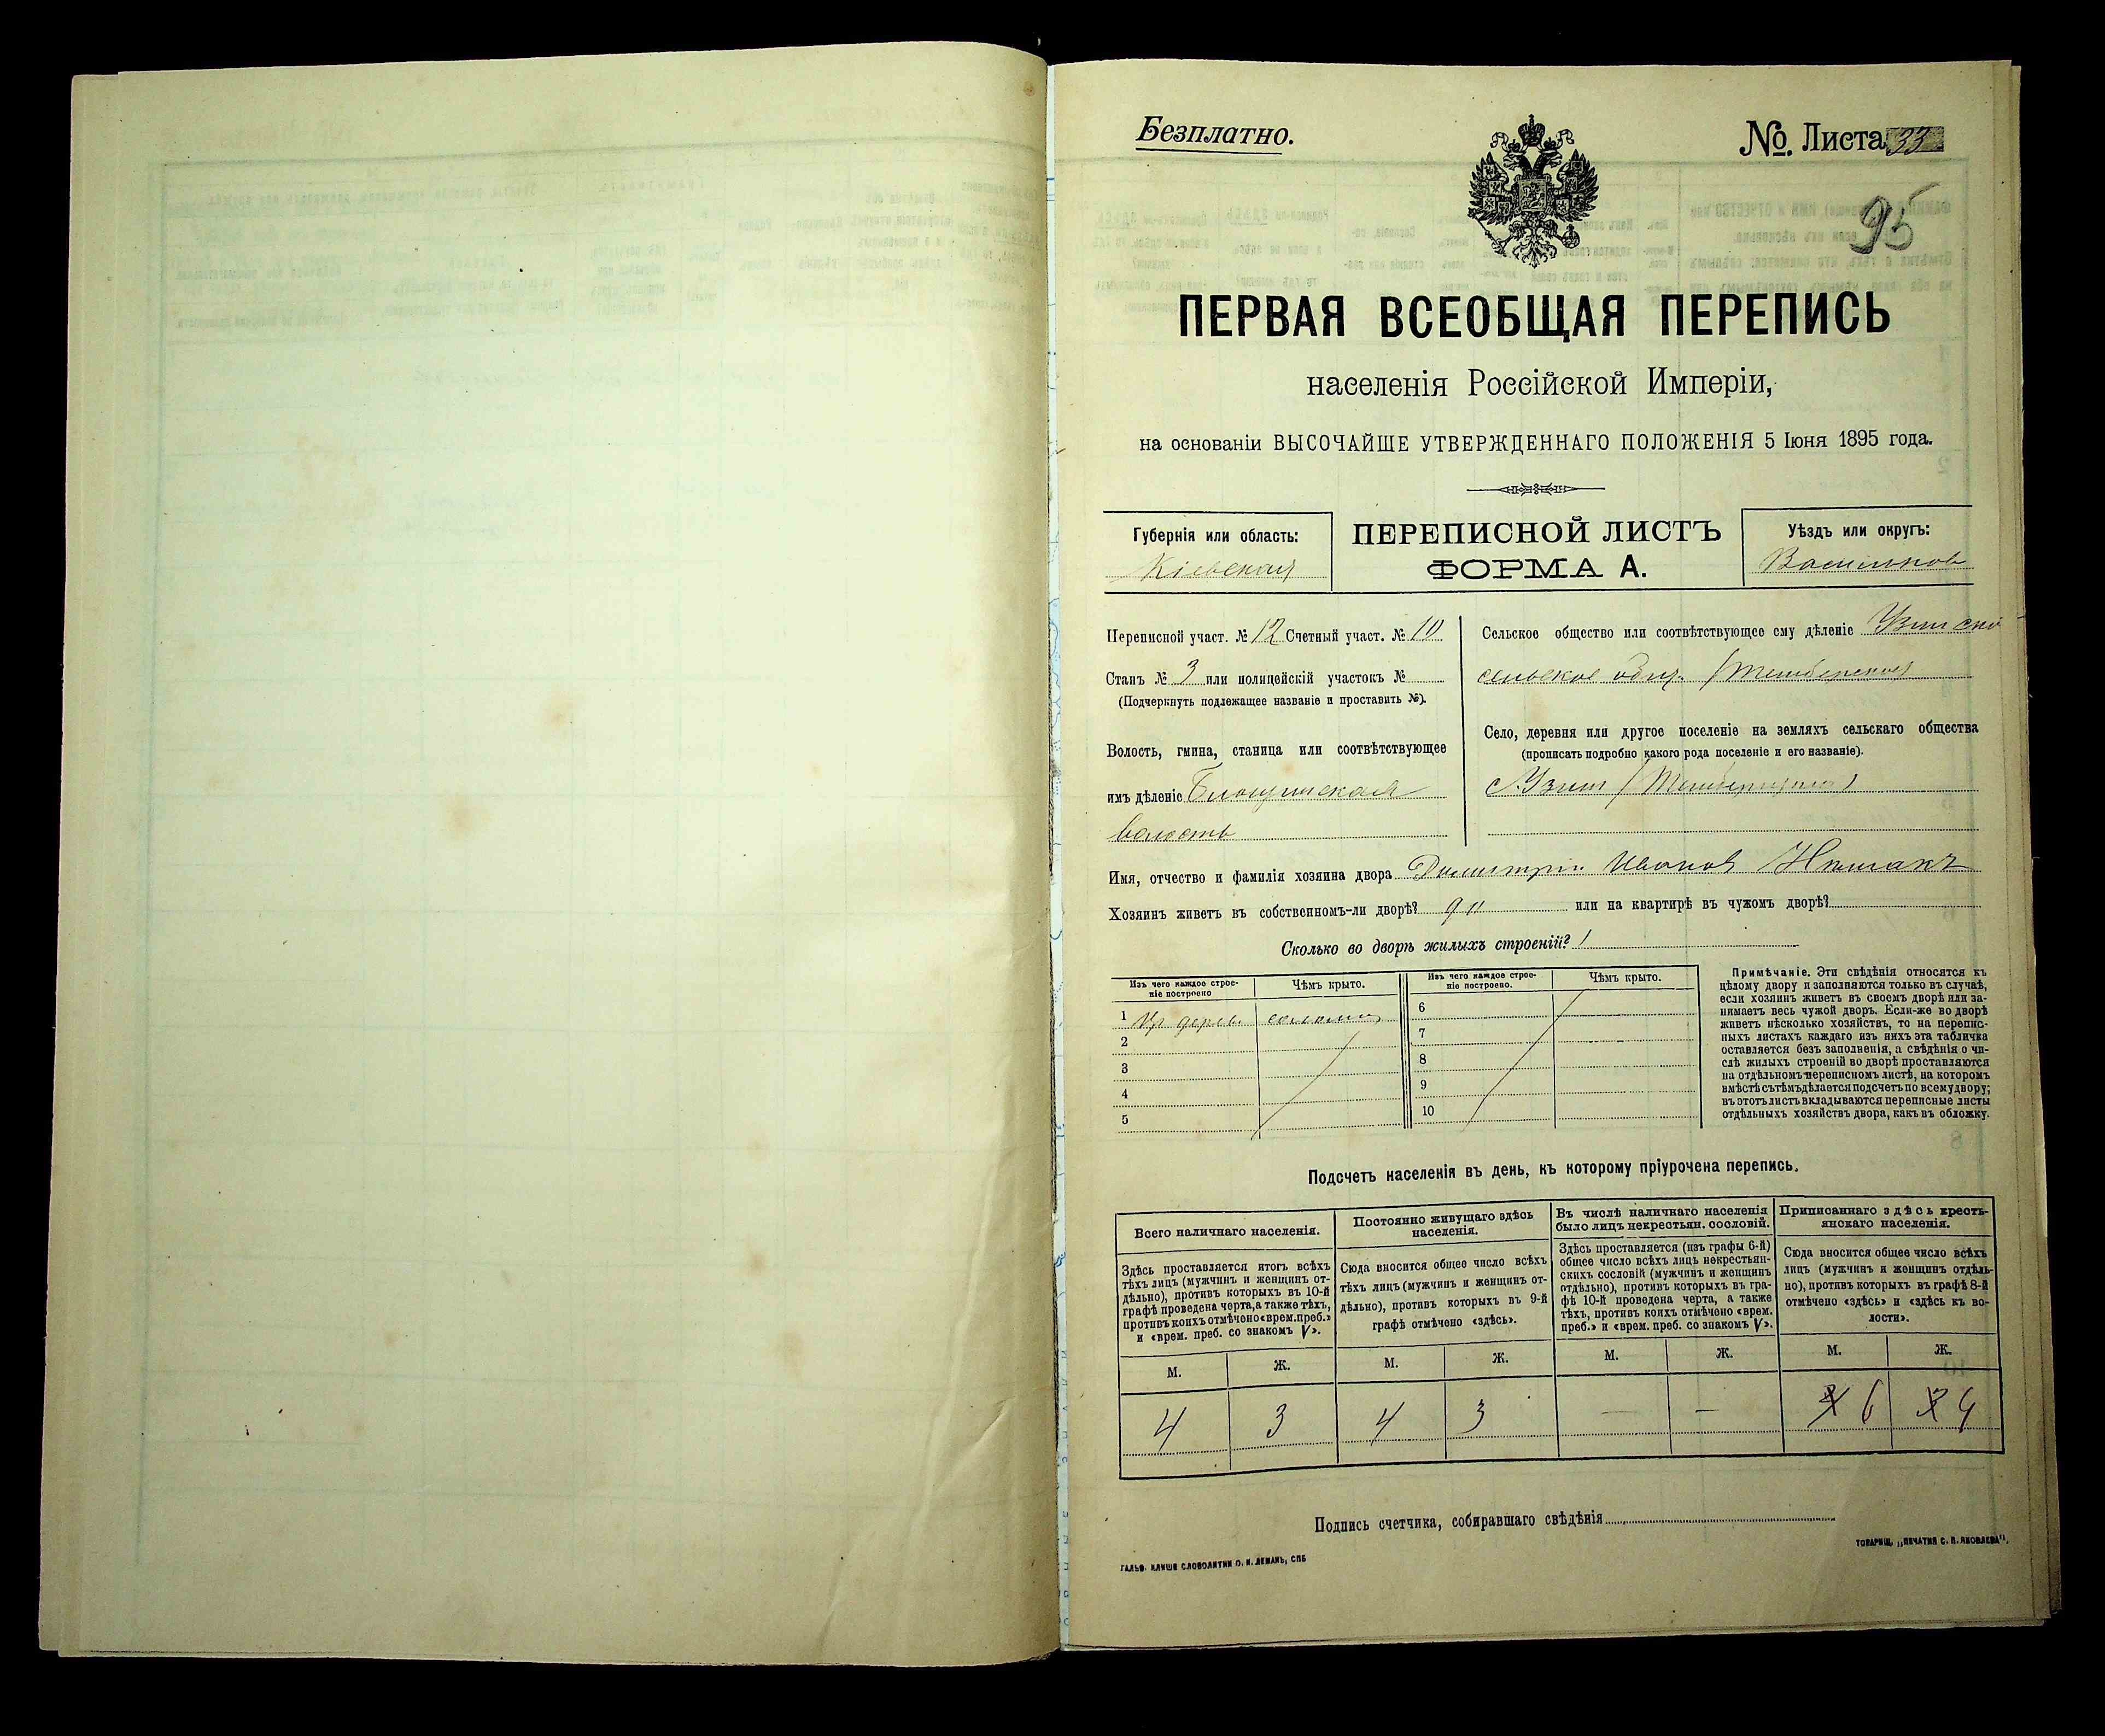 Безплатно.
№. Листа 33
95
ПЕРВАЯ ВСЕОБЩАЯ ПЕРЕПИСЬ
населенія Россійской Имперіи,
на основаніи ВЫСОЧАЙШЕ УТВЕРЖДЕННАГО ПОЛОЖЕНІЯ 5 Іюня 1895 года.
Губернія или область:
Кіевская
ПЕРЕПИСНОЙ ЛИСТЪ
ФОРМА А.
Уѣздъ или округъ:
Васильков
Переписной участ. № 12 Счетный участ. № 10
Станъ № 3 или полицейскій участокъ №
(Подчеркнуть подлежащее названіе и проставить №).
Волость, гмина, станица или соотвѣтствующее
имъ дѣленіе
волость
Сельское общество или соотвѣтствующее ему дѣленіе
сельское общ.
Село, деревня или другое поселеніе на земляхъ сельскаго общества
(прописать подробно какого рода поселеніе и его названіе).
Имя, отчество и фамилія хозяина двора Димитрій Иванов
Хозяинъ живетъ въ собственномъ-ли дворѣ? или на квартирѣ въ чужомъ дворѣ?
Сколько во дворѣ жилыхъ строеній? 1
Изъ чего каждое строе-
ніе построено
Чѣмъ крыто.
Изъ чего каждое строе-
ніе построено.
Чѣмъ крыто.
1 дерев. соломы
2
3
4
5
6
7
8
9
10
Примѣчаніе. Эти свѣдѣнія относятся къ
цѣлому двору и заполняются только въ случаѣ,
если хозяинъ живетъ въ своемъ дворѣ или за-
нимаетъ весь чужой дворъ. Если-же во дворѣ
живетъ нѣсколько хозяйствъ, то на перепис-
ныхъ листахъ каждаго изъ нихъ эта табличка
оставляется безъ заполненія, а свѣдѣнія о чи-
слѣ жилыхъ строеній во дворѣ проставляются
на отдѣльномъ переписномъ листѣ, на которомъ
вмѣстѣ съ тѣмъ дѣлается подсчетъ по всему двору;
въ этотъ листъ вкладываются переписные листы
отдѣльныхъ хозяйствъ двора, какъ въ обложку.
Подсчетъ населенія въ день, къ которому пріурочена перепись.
Всего наличнаго населенія.
Здѣсь проставляется итогъ всѣхъ
тѣхъ лицъ (мужчинъ и женщинъ от-
дѣльно), противъ которыхъ въ 10-й
графѣ проведена черта, а также тѣхъ,
противъ коихъ отмѣчено «врем. преб.»
и «врем. преб. со знакомъ V».
Постоянно живущаго здѣсь
населенія.
Сюда вносится общее число всѣхъ
тѣхъ лицъ (мужчинъ и женщинъ от-
дѣльно), противъ которыхъ въ 9-й
графѣ отмѣчено «здѣсь».
Въ числѣ наличнаго населенія
было лицъ некрестьян. сословій.
Здѣсь проставляется (изъ графы 6-й)
общее число всѣхъ лицъ некрестьян-
скихъ сословій (мужчинъ и женщинъ
отдѣльно), противъ которыхъ въ гра-
фѣ 10-й проведена черта, а также
тѣхъ, противъ коихъ отмѣчено «врем.
преб.» и «врем. преб. со знакомъ V».
Приписаннаго здѣсь кресть-
янскаго населенія.
Сюда вносится общее число всѣхъ
лицъ (мужчинъ и женщинъ отдѣль-
но), противъ которыхъ въ графѣ 8-й
отмѣчено «здѣсь» и «здѣсь къ во-
лости».
М. Ж. М. Ж. М. Ж. М. Ж.
4 3 4 3 — — 6 4
Подпись счетчика, собиравшаго свѣдѣнія
ГАЛЬВ. КЛИШЕ СЛОВОЛИТНИ О. И. ЛЕМАНЪ, СПБ
ТОВАРИЩ. „ПЕЧАТНЯ С. П. ЯКОВЛЕВА",